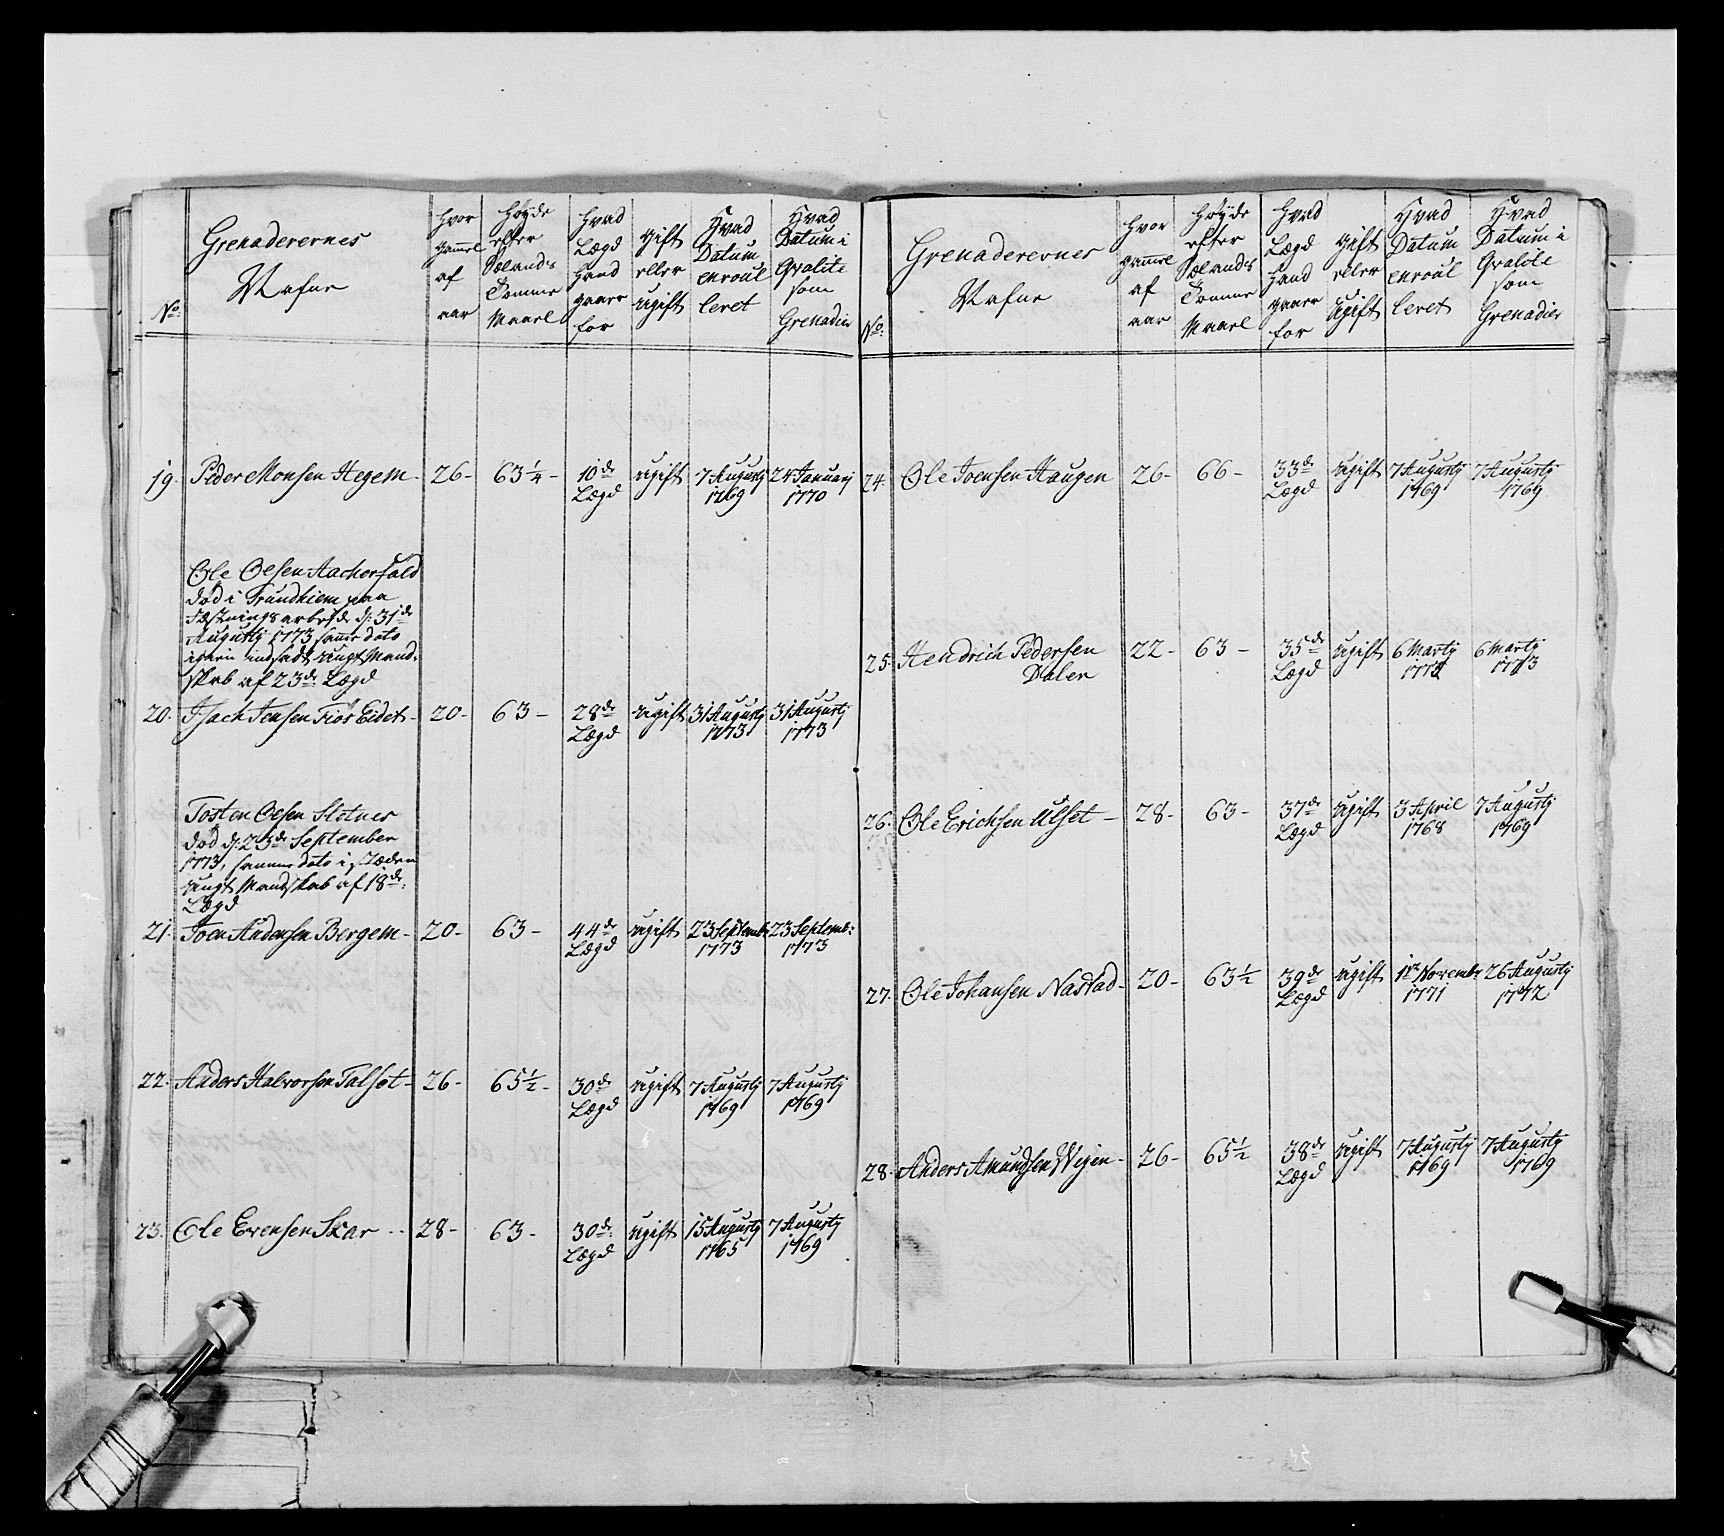 No:
Grenaderernes
Nafne
hvor
gammel
af
aar
Høyde
efter
Sælands
Tomme
Maael
hvad
Lægd
hand
gaaer
for
gift
eller
ugift
Hvad
Datum
enroul
leret
Hvad
Datum i
Qvalite
som
Grenadier
19. Peder Monsen Hegem - 26 - 63 1/4 - 10de Lægd ugift 7 Augustj 1769 24 Januarj 1770
Ole Oelsen
død i Trundhiem paa
Fæstnings arbeyde d: 31de
Augustj 1773 samme dato
igien indsadt ungt Mand-
skab af 23de Lægd
20. Isach Jensen Fiøs Eidet - 20 - 63 - 28de Lægd ugift 31 Augustj 1773 31 Augustj 1773
Tosten Oelsen Sletnes
død d: 23de September
1773, samme dato i stæden
ungt Mandskab af 18de
Lægd
21. Joen Andersen Bergem - 20 - 63 - 44de Lægd ugift 23 Septembr 1773 23 Septembr: 1773
22. Anders Halvorsen Talset - 26 - 65 1/2 - 30de Lægd ugift 7 Augustj 1769 7 Augustj 1769
23. Ole Evensen Skar - - 28 - 63 - 30de Lægd ugift 15 Augustj 1765 7 Augustj 1769
No:
Grenaderernes
Nafne
hvor
gammel
af
aar
Høyde
efter
Sælands
Tomme
Maael
hvad
Lægd
hand
gaaer
for
gift
eller
ugift
Hvad
Datum
enroul
leret
Hvad
Datum i
Qvalite
som
Grenadier
24. Ole Joensen Haugen 26 - 66 - 33de Lægd ugift 7 Augustj 1769 7 Augustj 1769
25. Hendrich Pedersen
Dalen 22 - 63 - 35de Lægd ugift 6 Martj 1773 6 Martj 1773
26. Ole Erichsen Ulset - 28 - 63 - 37de Lægd ugift 3 April 1768 7 Augustj 1769
27. Ole Johansen Nastad - 20 - 63 1/2 39de Lægd ugift 1ste Novembr 1771 26 Augustj 1772
28. Anders Amundsen Wigen - 26 - 65 1/2 38de Lægd ugift 7 Augustj 1769 7 Augustj 1769